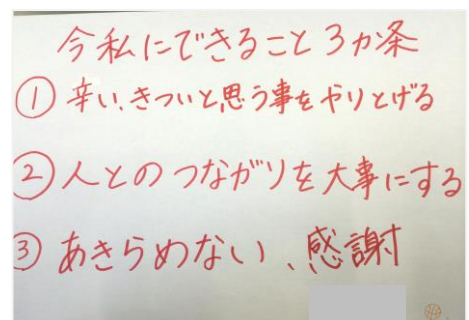 今私にできること3カ条
① 辛い、きついと思う事をやりとげる
② 人とのつながりを大事にする
③ あきらめない、感謝